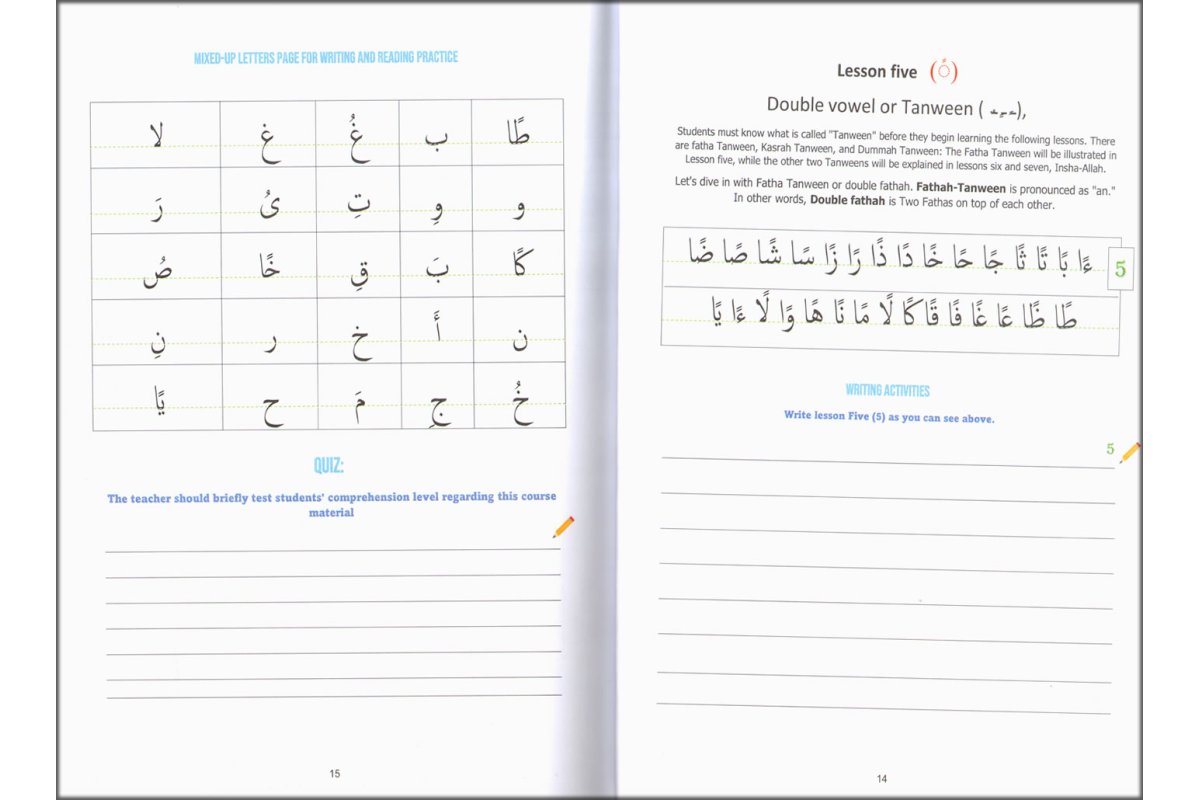 Lesson five (ً)
Double vowel or Tanween ( ـًـٍـٌ ),
Students must know what is called "Tanween" before they begin learning the following lessons. There
are fatha Tanween, Kasrah Tanween, and Dummah Tanween: The Fatha Tanween will be illustrated in
Lesson five, while the other two Tanweens will be explained in lessons six and seven, Insha-Allah.
Let's dive in with Fatha Tanween or double fathah. Fathah-Tanween is pronounced as "an."
In other words, Double fathah is Two Fathas on top of each other.
ءًا بًا تًا ثًا جًا حًا خًا دًا ذًا رًا زًا سًا شًا صًا ضًا
5
طًا ظًا عًا غًا فًا قًا كًا لًا مًا نًا هًا وًا لًا ءًا يًا
WRITING ACTIVITIES
Write lesson Five (5) as you can see above.
5
14
MIXED-UP LETTERS PAGE FOR WRITING AND READING PRACTICE
طًا ب غُ غ لا
و وِ تِ ىُ رَ
كًا بَ قِ خًا صُ
ن أَ خ ر نِ
خُ جِ مَ ح يًا
QUIZ:
The teacher should briefly test students' comprehension level regarding this course
material
15